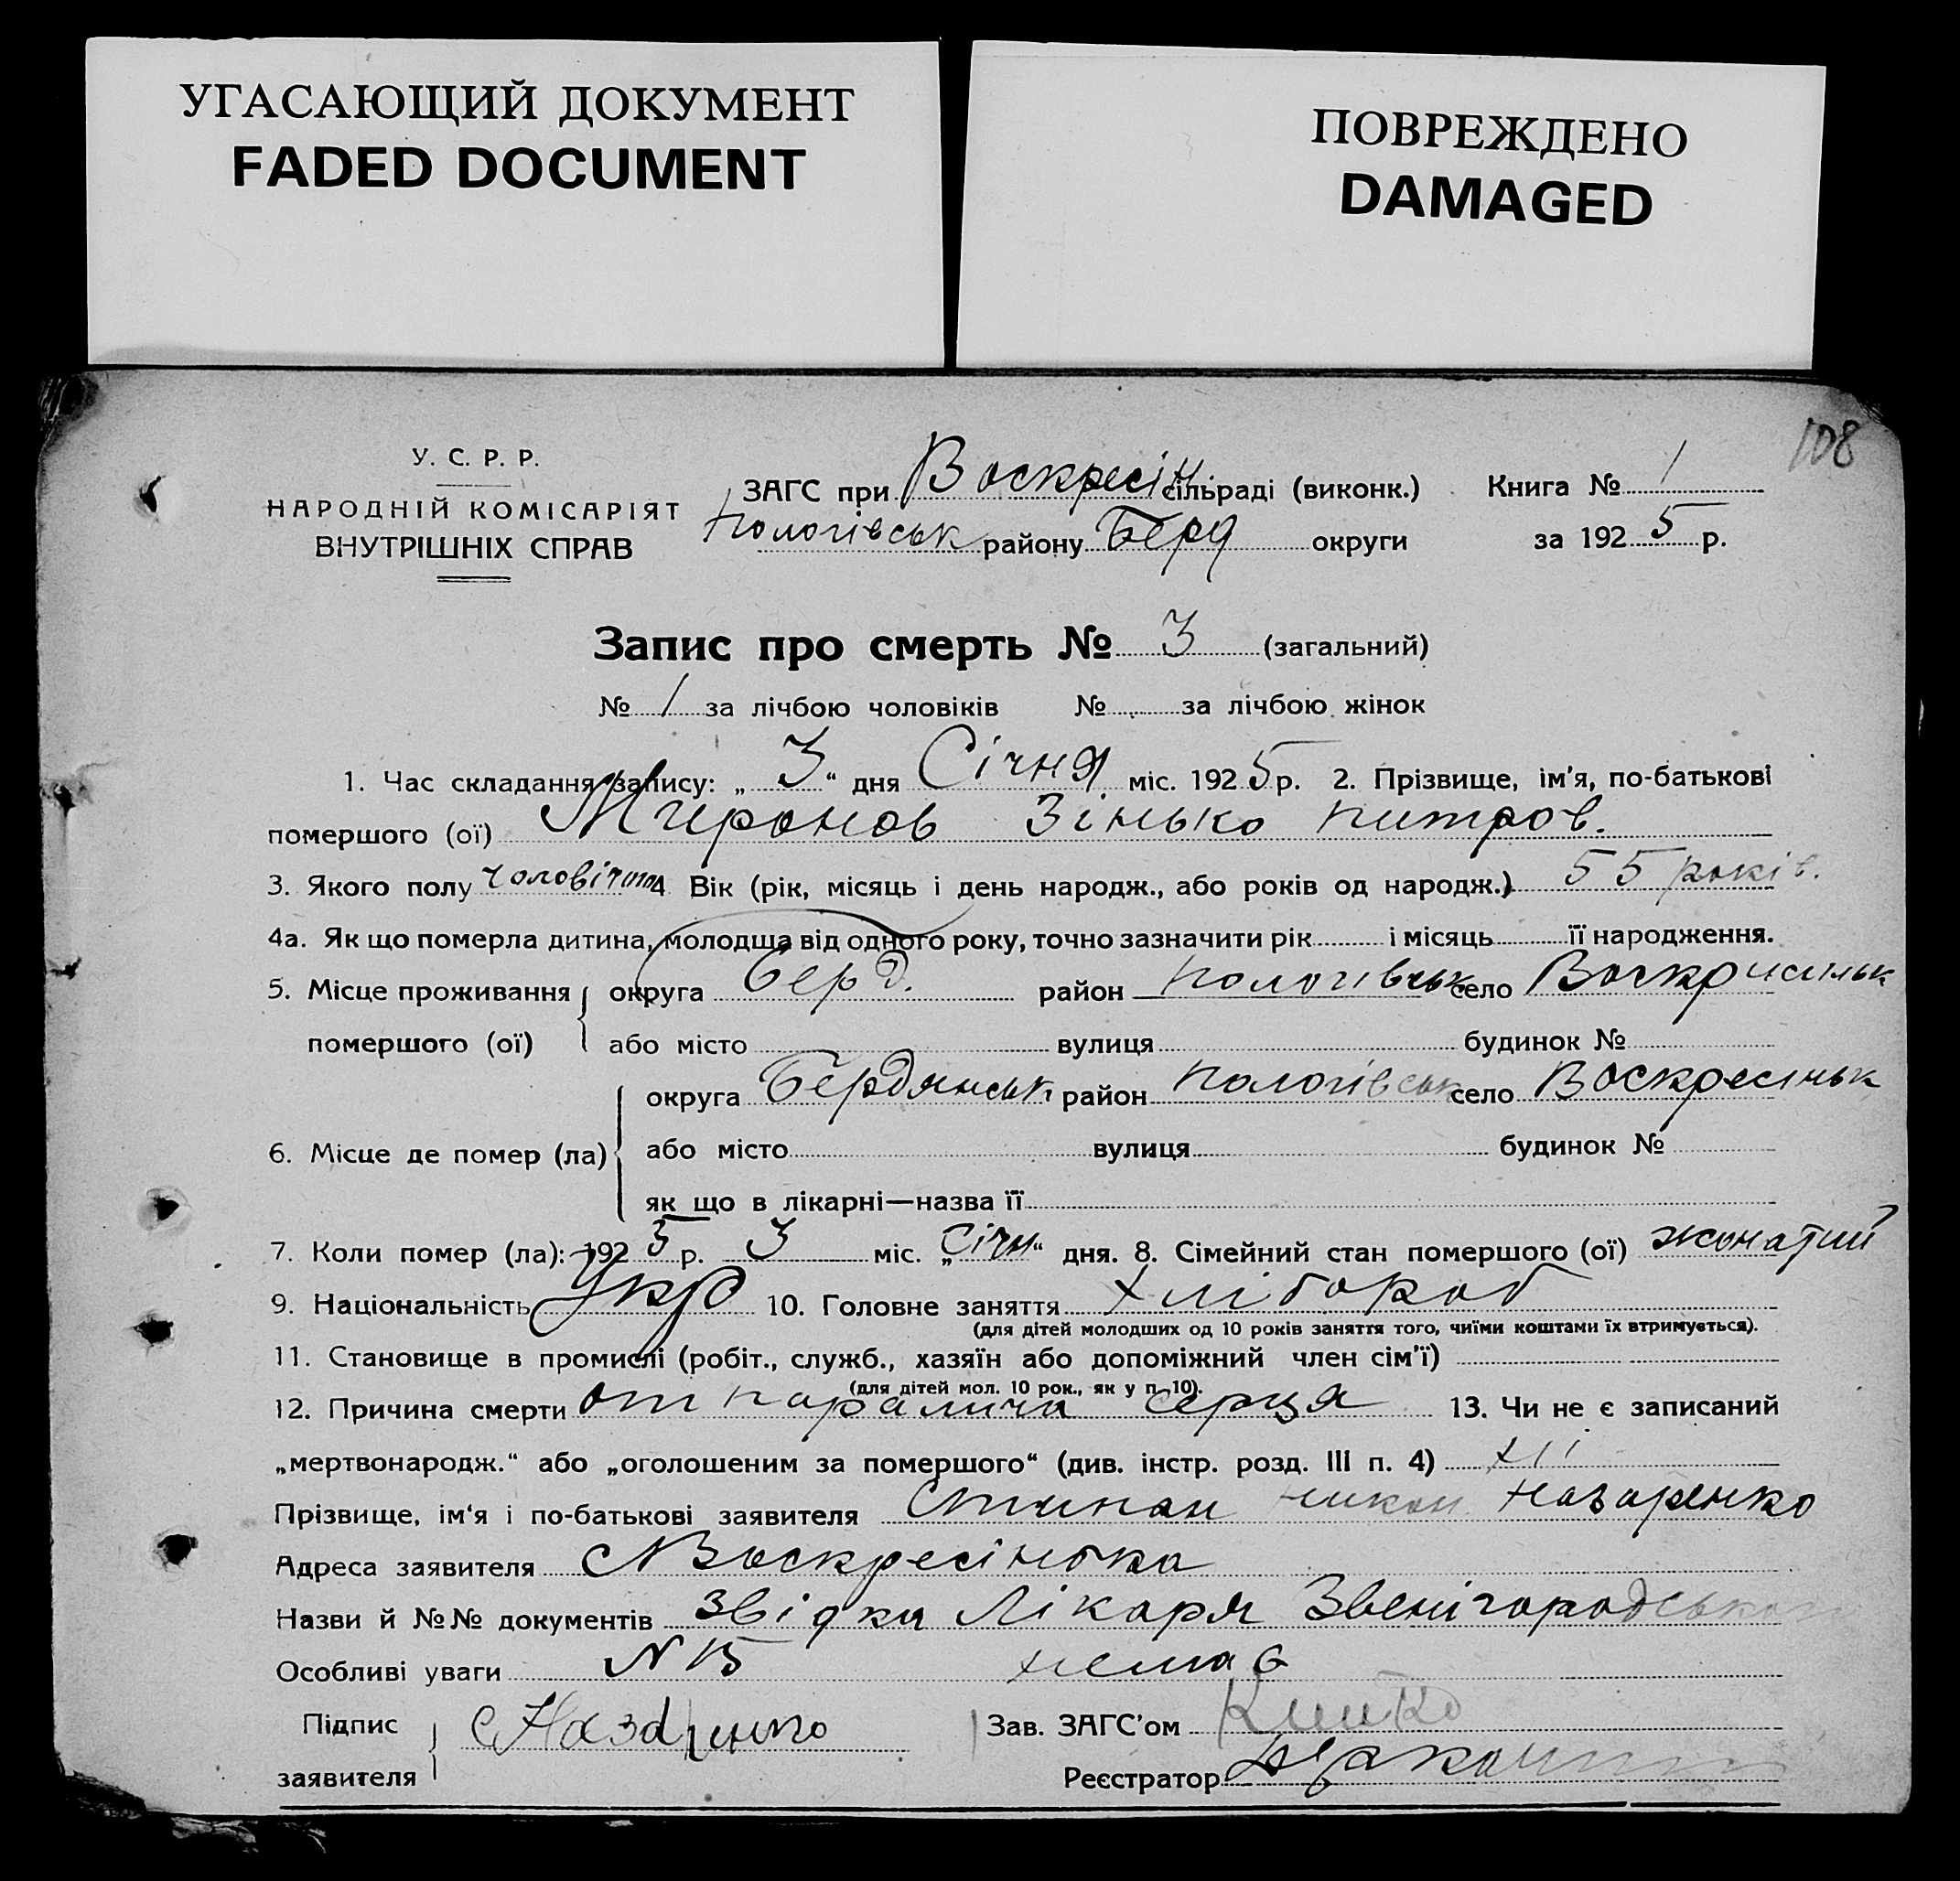 УГАСАЮЩИЙ ДОКУМЕНТ
FADED DOCUMENT
ПОВРЕЖДЕНО
DAMAGED
108
У. С. Р. Р.
НАРОДНІЙ КОМІСАРІЯТ
ВНУТРІШНІХ СПРАВ
ЗАГС при Воскресін. сільраді (виконк.)
Пологівськ району Берд округи
Книга № 1
за 1925 р.
Запис про смерть № 3 (загальний)
№ 1 за лічбою чоловіків № за лічбою жінок
1. Час складання запису: „ 3 “ дня Січня міс. 1925 р. 2. Прізвище, ім'я, по-батькові
помершого (ої) Миронов Зінько питров.
3. Якого полу 4 Вік (рік, місяць і день народж., або років од народж.) 55 років.
4а. Як що померла дитина, молодша від одного року, точно зазначити рік і місяць її народження.
5. Місце проживання округа Берд. район Пологівськ село
помершого (ої) або місто вулиця будинок №
округа Бердянськ район Пологівськ село Воскресіньк
6. Місце де помер (ла) або місто вулиця будинок №
як що в лікарні—назва її
7. Коли помер (ла): 1925 р. 3 міс. „Січн“ дня. 8. Сімейний стан помершого (ої) жонатий
9. Національність Укр 10. Головне заняття хлібороб
(для дітей молодших од 10 років заняття того, чиїми коштами їх втримується).
11. Становище в промислі (робіт., служб., хазяїн або допоміжний член сім'ї)
(для дітей мол. 10 рок., як у п. 10).
12. Причина смерти от паралича серця 13. Чи не є записаний
„мертвонародж.“ або „оголошеним за помершого“ (див. інстр. розд. III п. 4) ні
Прізвище, ім'я і по-батькові заявителя Стипан никон Назаренко
Адреса заявителя с Воскресінька
Назви й №№ документів звідка Лікаря Звенігородського
Особливі уваги N 15 немає
Підпис
заявителя С Назаринко
Зав. ЗАГС'ом
Реєстратор